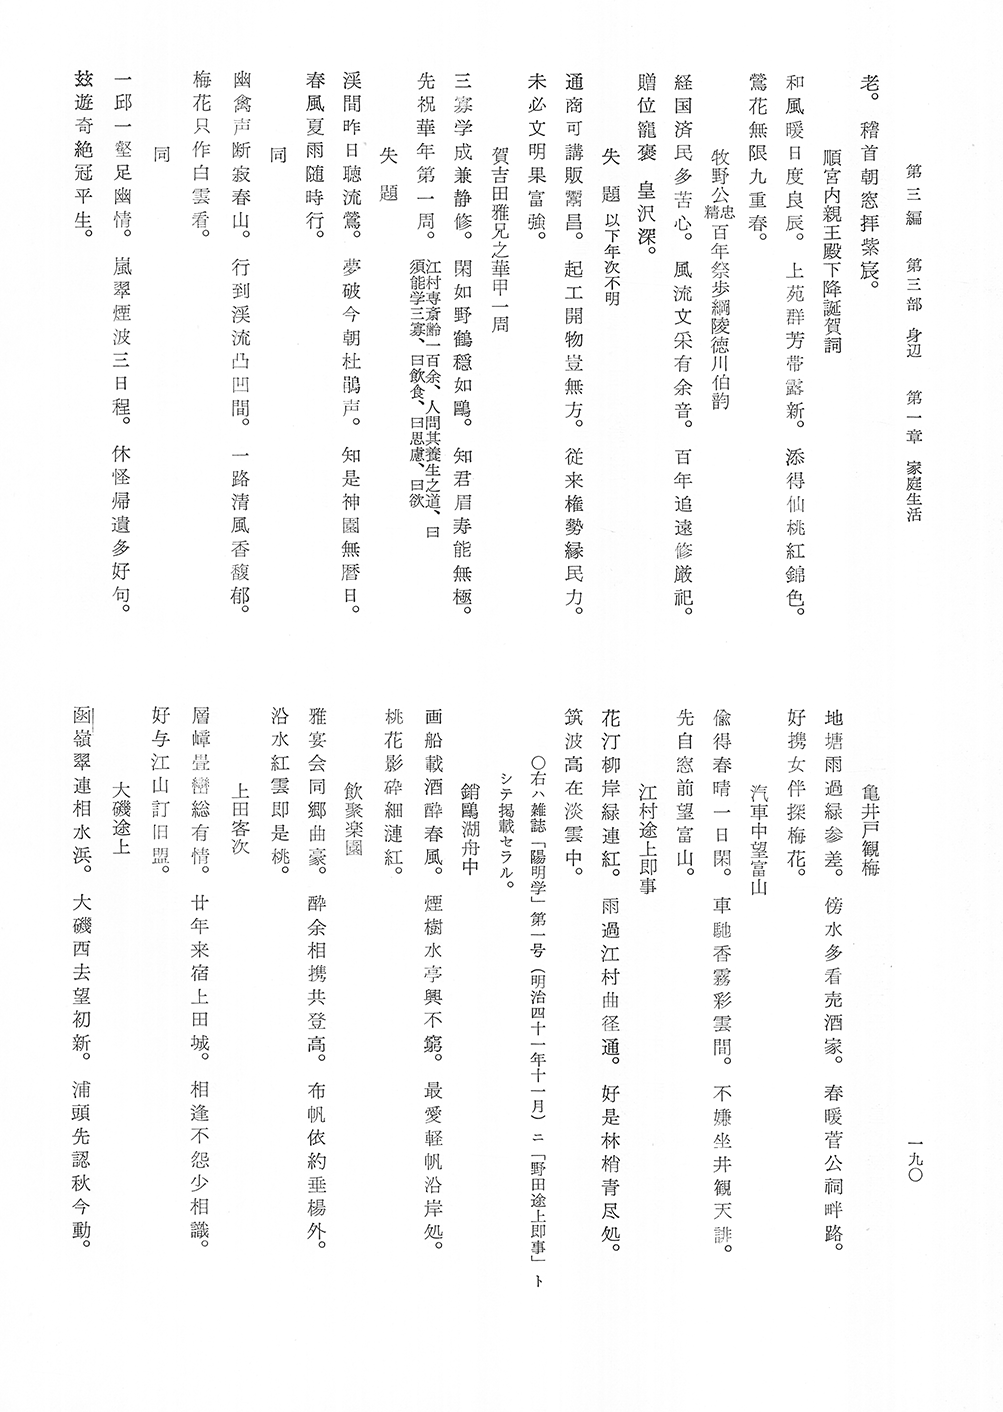 第三編　第三部　身辺　第一章　家庭生活
一九〇
老。稽首朝窓拝紫宸。
順宮内親王殿下降誕賀詞
和風暖日度良辰。上苑群芳帯露新。添得仙桃紅錦色。
鶯花無限九重春。
牧野公忠精百年祭歩綱陵徳川伯韵
経国済民多苦心。風流文采有余音。百年追遠修厳祀。
贈位寵褒　皇沢深。
失　題 以下年次不明
通商可講販鬻昌。起工開物豈無方。従来権勢縁民力。
未必文明果富強。
賀吉田雅兄之華甲一周
三寡学成兼静修。閑如野鶴穏如鷗。知君眉寿能無極。
先祝華年第一周。江村専斎齢一百余、人問其養生之道、曰須能学三寡、曰飲食、曰思慮、曰欲
失　題
渓間昨日聴流鶯。夢破今朝杜鵑声。知是神園無暦日。
春風夏雨随時行。
同
幽禽声断寂春山。行到渓流凸凹間。一路清風香馥郁。
梅花只作白雲看。
同
一邱一壑足幽情。嵐翠煙波三日程。休怪帰遺多好句。
玆遊奇絶冠平生。
亀井戸観梅
地塘雨過緑参差。傍水多看売酒家。春暖菅公祠畔路。
好携女伴探梅花。
汽車中望富山
偸得春晴一日閑。車馳香霧彩雲間。不嫌坐井観天誹。
先自窓前望富山。
江村途上即事
花汀柳岸緑連紅。雨過江村曲径通。好是林梢青尽処。
筑波高在淡雲中。
〇右ハ雑誌「陽明学」第一号（明治四十一年十一月）ニ「野田途上即事」ト
シテ掲載セラル。
銷鷗湖舟中
画船載酒酔春風。煙樹水亭興不窮。最愛軽帆沿岸処。
桃花影砕細漣紅。
飲聚楽園
雅宴会同郷曲豪。酔余相携共登高。布帆依約垂楊外。
沿水紅雲即是桃。
上田客次
層嶂畳巒総有情。廿年来宿上田城。相逢不怨少相識。
好与江山訂旧盟。
大磯途上
函嶺翠連相水浜。大磯西去望初新。浦頭先認秋今動。